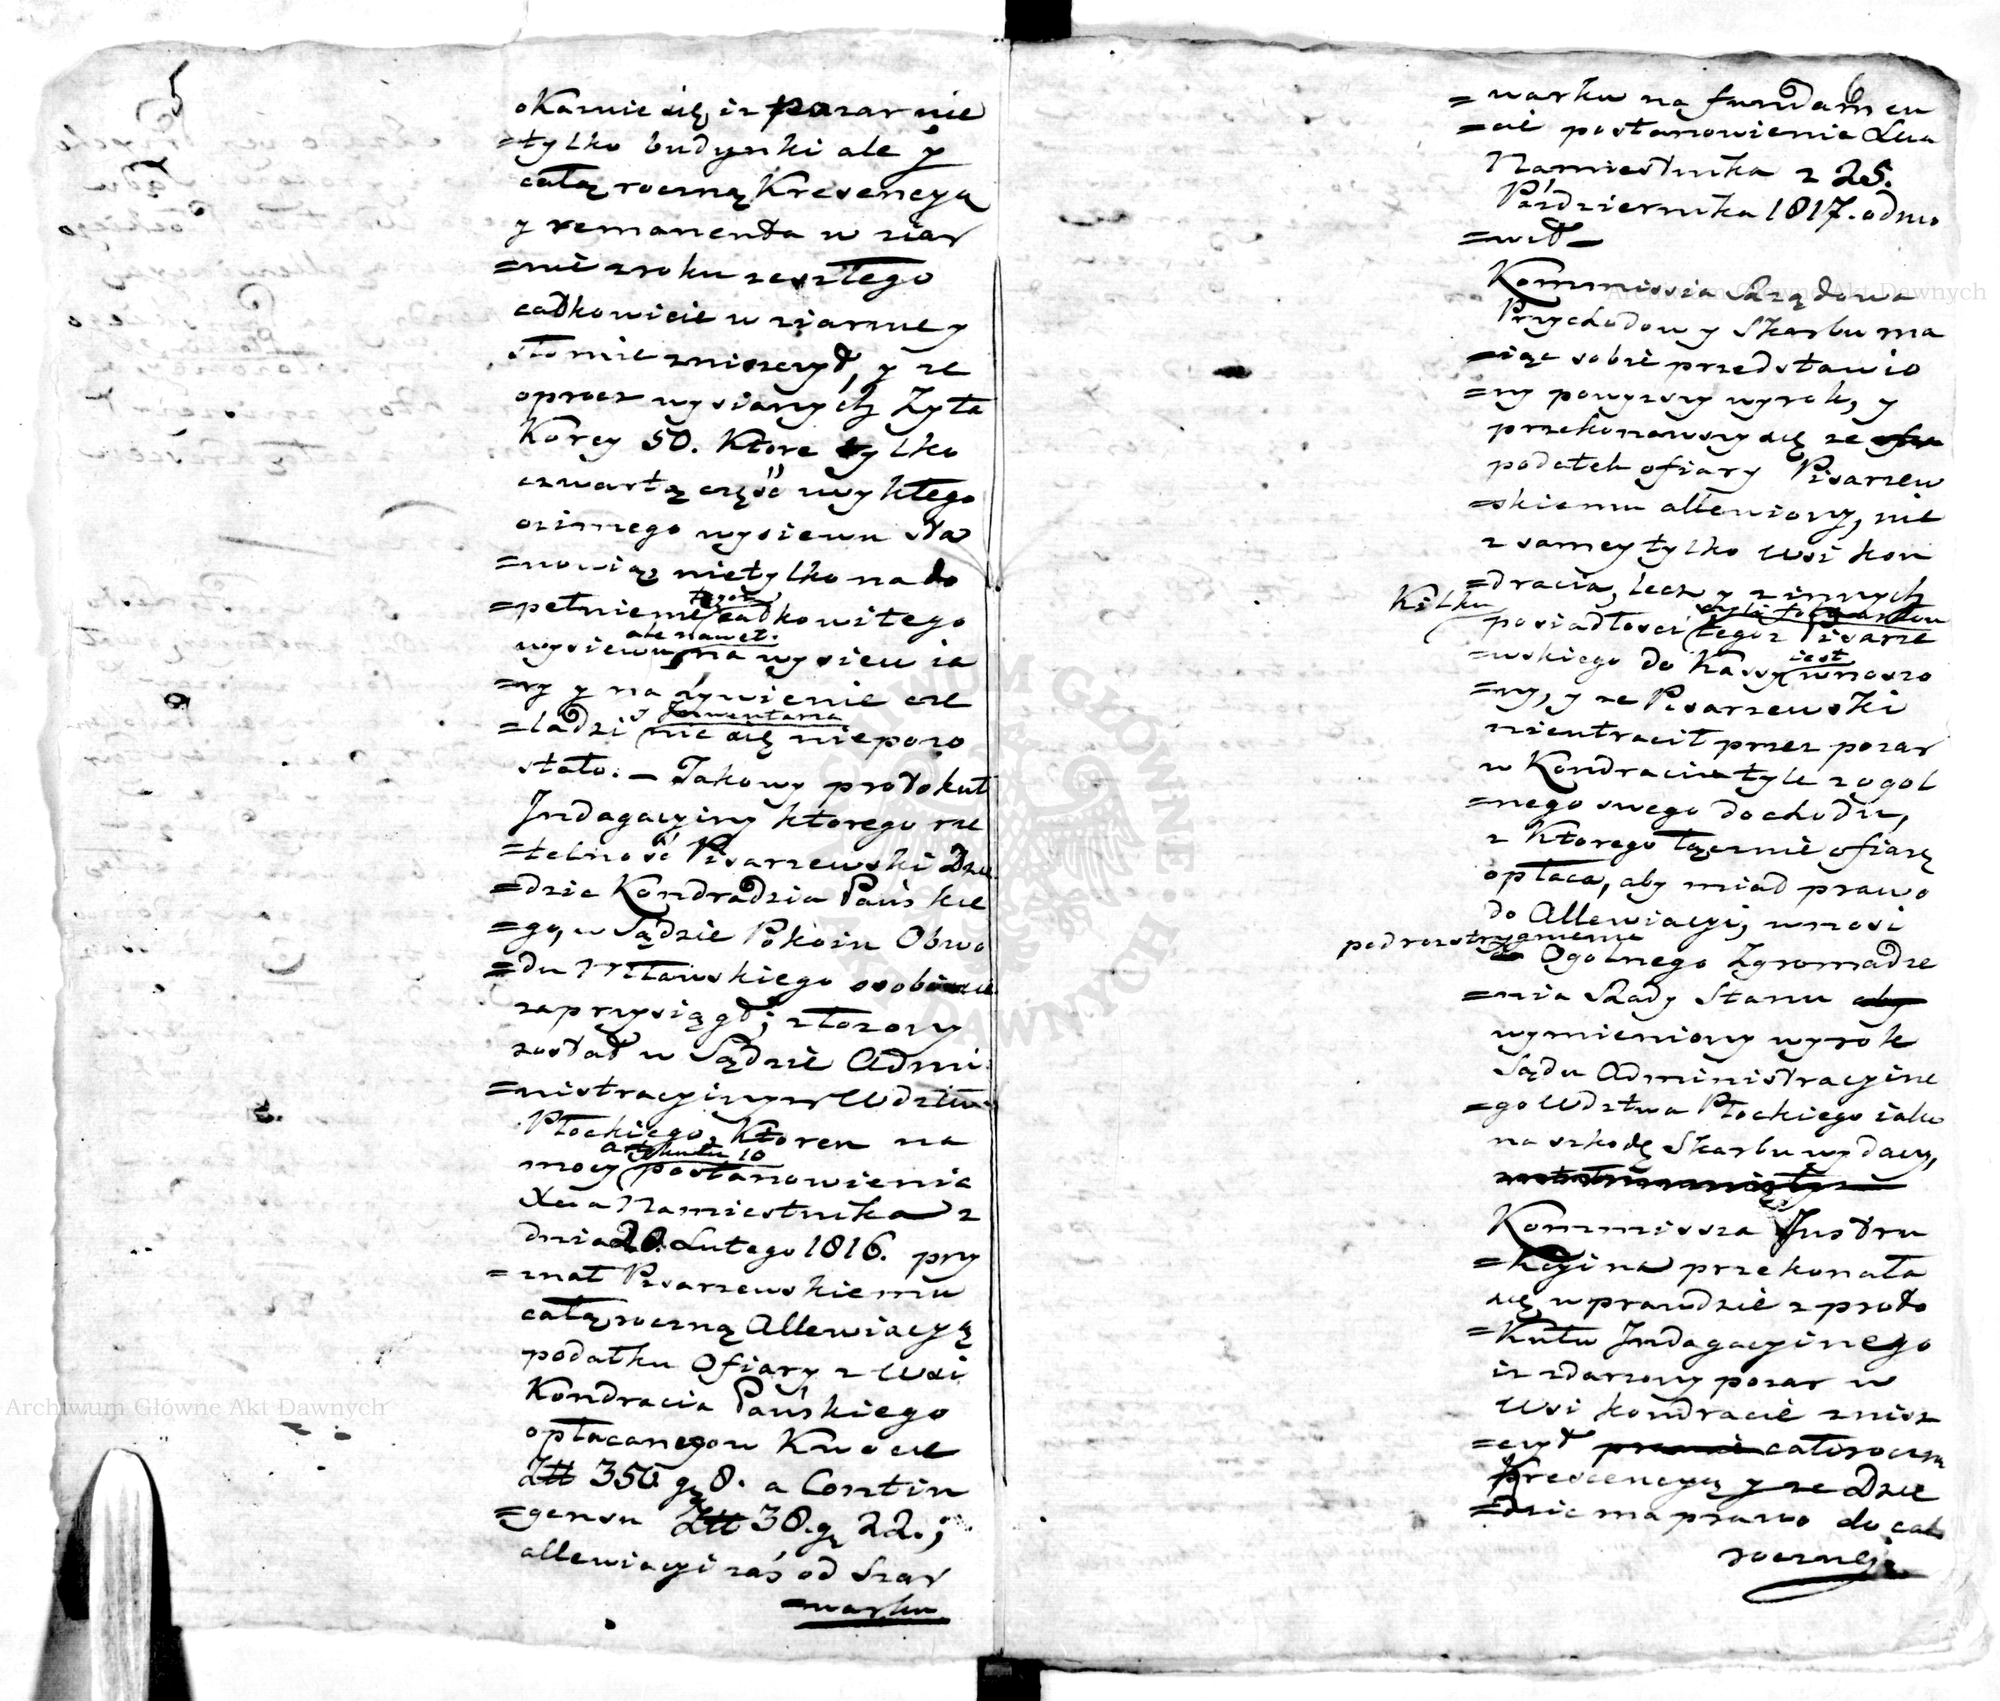 5
okazuie się iz pozar nie
=tylko budynki ale y
całą roczną Krescencyą
y remanenta w ziar
=nie zroku zeszłego
całkowicie w ziarnie y
słomie zniszczył, y ze
oprocz wysianych Zyta
Korcy 50. Ktore tylko
czwartą część zwykłego
ozimego wysiewu sta
=nowią, nietylko na do
tegoż
=pełnienie całkowitego
ale nawet
wysiewu, na wysiew ia
=ry y na zywienie cze
y Inwentarza
=ladzi nic się niepozo
stało. — Takowy protokuł
Indagacyiny ktorego rze
=telność Pisarzewski Dzie
=dzic Kondradzia Pańskie
=go, w Sądzie Pokoiu Obwo
=du Mławskiego osobiscie
zaprzysiągł; złozony
został w Sądzie Admi
=nistracyinym Wdztwa
Płockiego, ktoren na
artykułu 10
mocy postanowienia
Xcia Namiestnika z
dnia 20. Lutego 1816. przy
=znał Pisarzewskiemu
całą roczną Allewiacyą
podatku Ofiary z Wsi
Kondracia Pańskiego
opłacanego w Kwocie
Złł 350 gr 8. a Contin
=gensu Złł 38. gr 22.;
allewiacyi zaś od Szar
=warku
6
=warku na fundamen
=cie postanowienia Xcia
Namiestnika z 25.
Października 1817. odmo
=wił —
Kommissia Rządowa
Przychodow y Skarbu ma
=iąc sobie przedstawio
=ny powyzszy wyrok, y
przekonawszy się ze
podatek ofiary Pisarzew
=skiemu allewiony, nie
z samey tylko Wsi Kon
=dracia, lecz y z innych
Kilku
posiadłosci tegoz Pisarze
=wskiego do Kassy
iest
wnoszo
=ny, y ze Pisarzewski
nieutracił przez pozar
w Kondraciu tyle z ogol
=nego swego dochodu,
z Ktorego łącznie ofiarę
opłaca, aby miał prawo
do Allewiacyi, wnosi
pod rozstrzygnienie
Ogolnego Zgromadze
=nia Rady Stanu aby
wymieniony wyrok
Sądu Administracyine
=go Wdztwa Płockiego iako
na szkodę Skarbu wydany,
Kommissia Instru
=kcyina przekonała
się wprawdzie z proto
=Kułu Indagacyinego
iz zdarzony pozar w
Wsi Kondracie znisz
=czył całoroczną
Krescencyą y ze Dzie
=dzic ma prawo do cało
roczney
Archiwum Główne Akt Dawnych
Archiwum Główne Akt Dawnych
ARCHIWUM GŁÓWNE AKT DAWNYCH